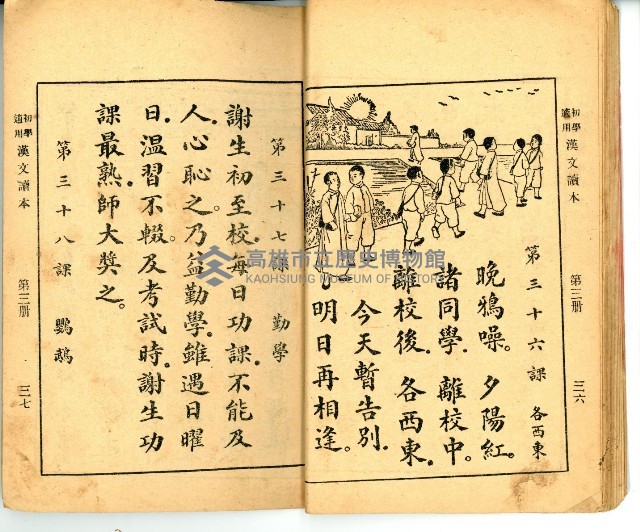 初學適用 漢文讀本 第三册 三六
第三十六課 各西東
晚鴉噪。夕陽紅。
諸同學。離校中。
離校後。各西東。
今天暫告別。
明日再相逢。
第三十七課 勤學
謝生初至校。每日功課不能及
人。心恥之。乃益勤學。雖遇日曜
日。溫習不輟。及考試時。謝生功
課最熟。師大獎之。
第三十八課 鸚鵡
初學適用 漢文讀本 第三册 三七
高雄市立歷史博物館
KAOHSIUNG MUSEUM OF HISTORY